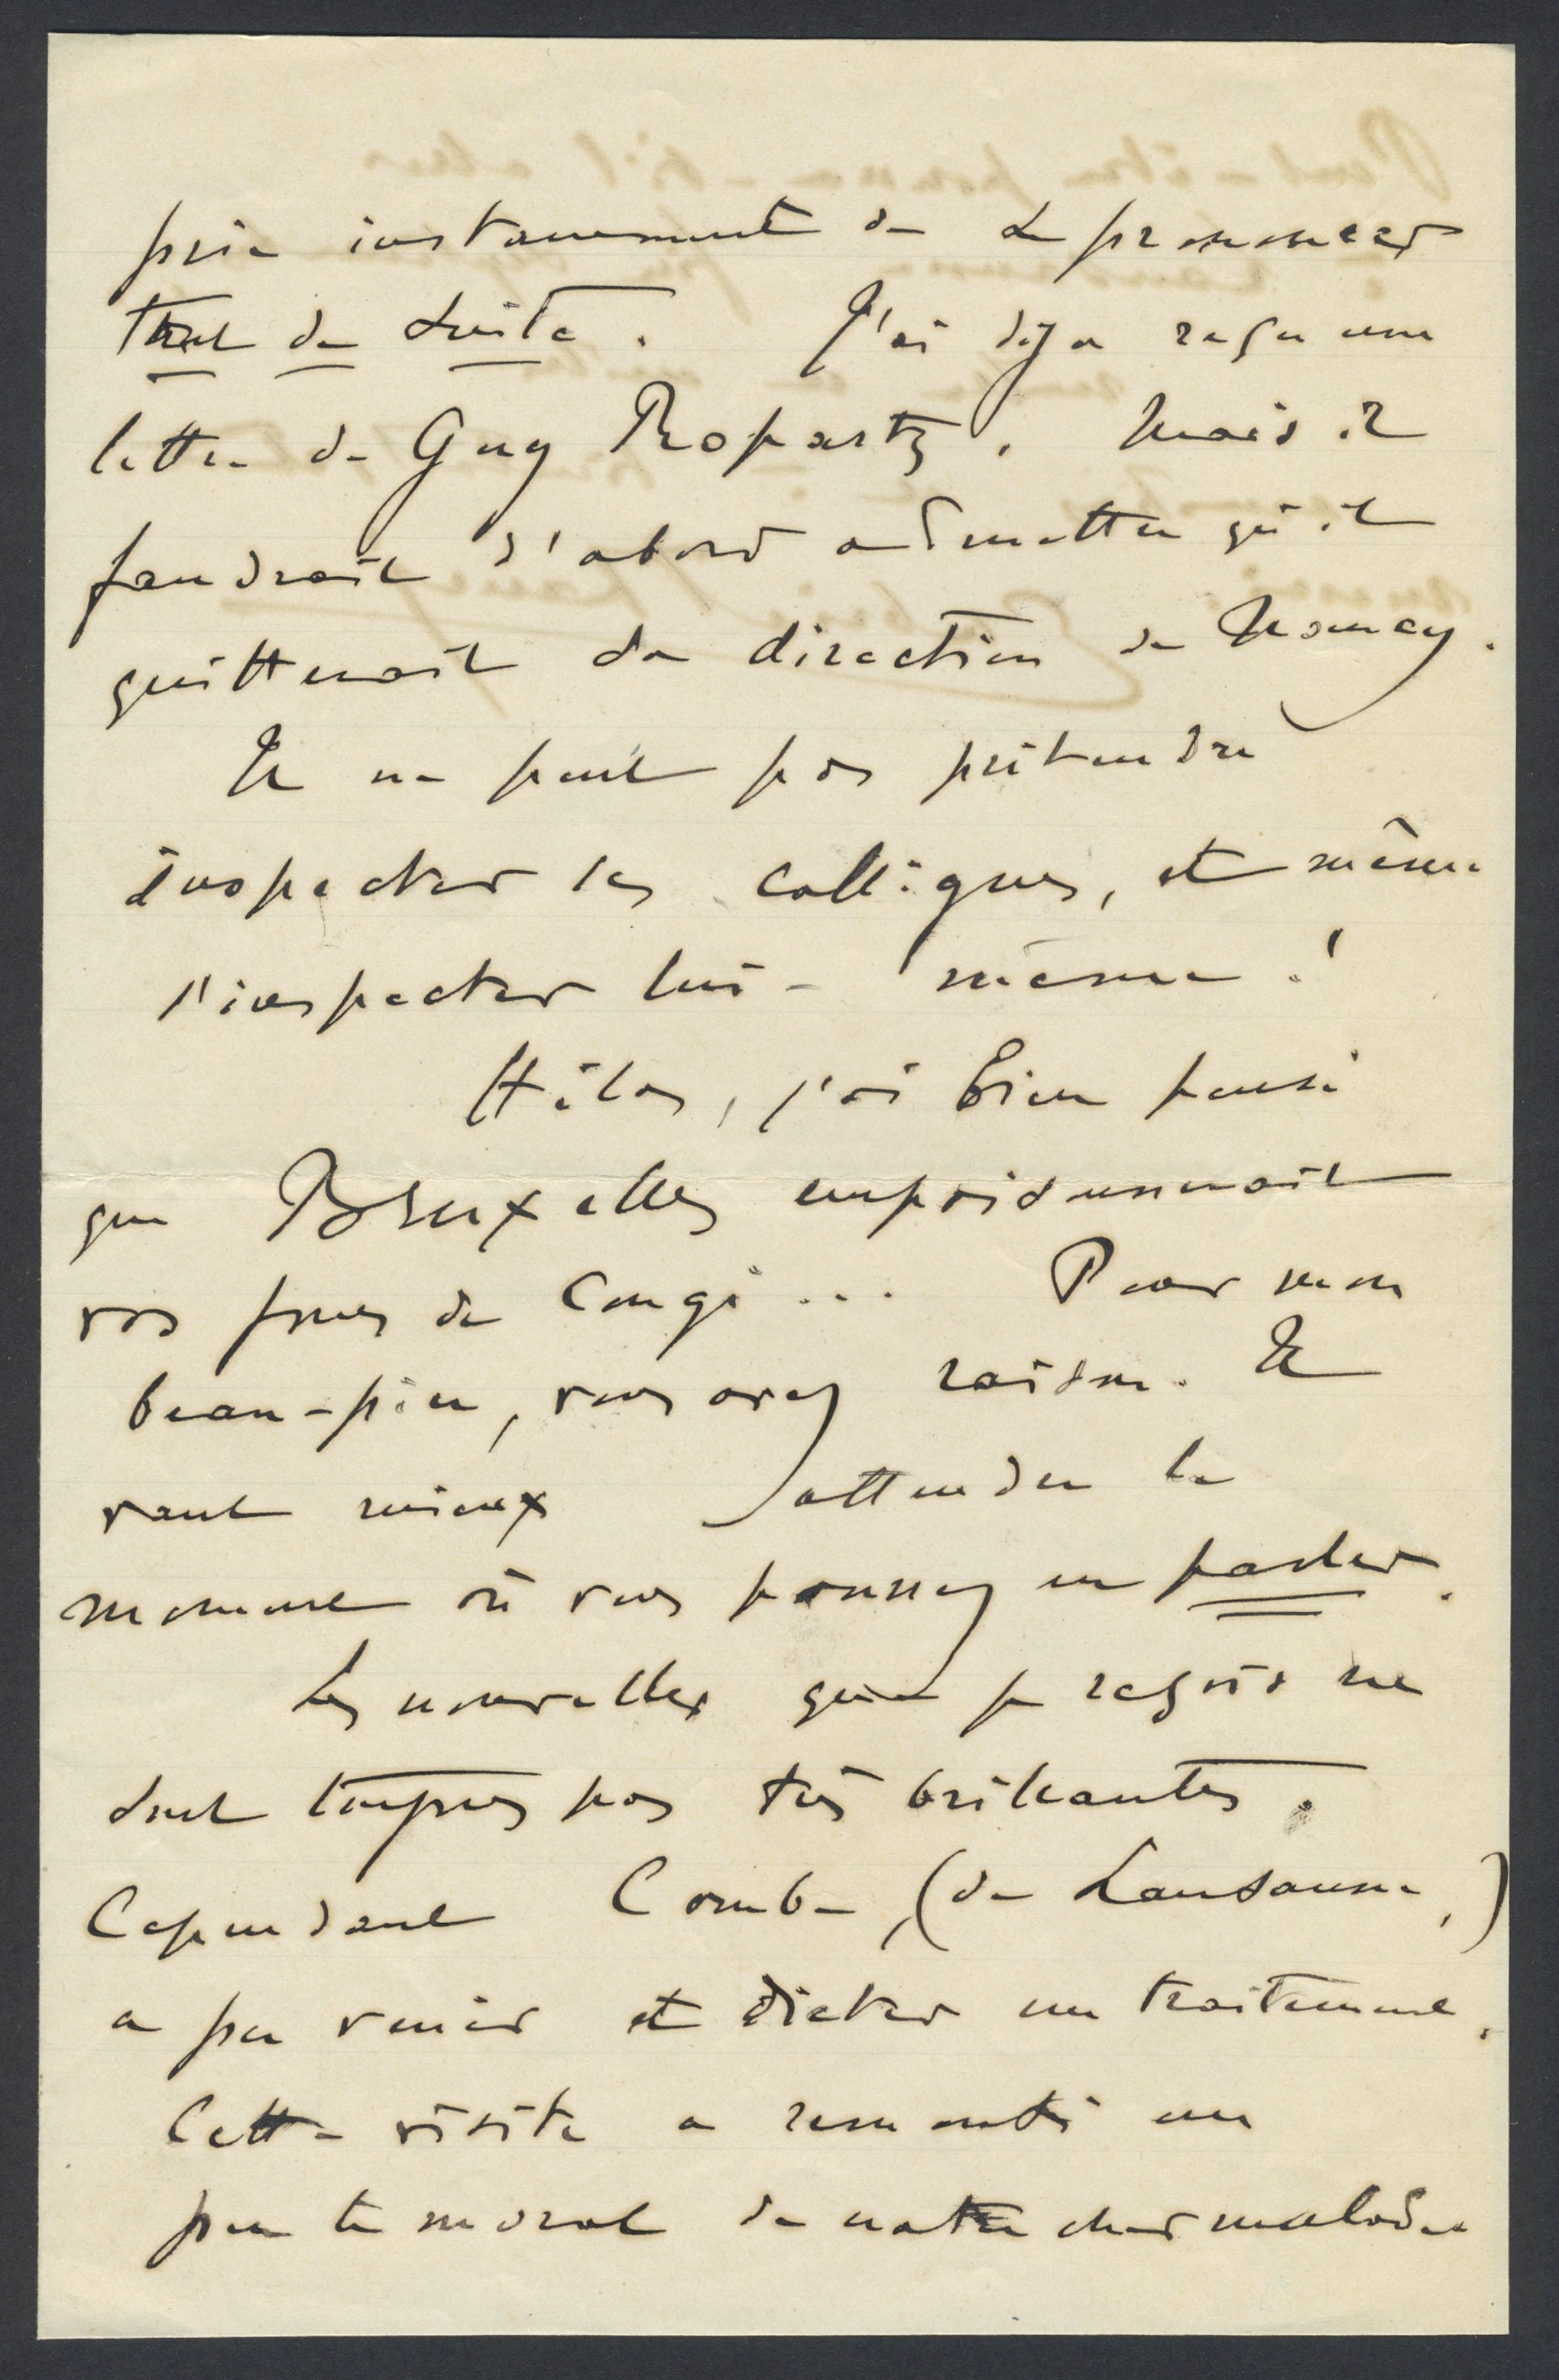 prie instamment de se prononcer
tout de suite. J'ai déjà reçu une
lettre de Guy Ropartz. Mais il
faudrait d'abord admettre qu'il
quitterait sa direction de Nancy.
Il ne peut pas prétendre
inspecter ses collègues, et même
s'inspecter lui-même !
Hélas, j'ai bien pensé
que Bruxelles empoisonnerait
vos jours de congé... Pour mon
beau-père, vous avez raison. Il
vaut mieux attendre le
moment où vous pourrez en parler.
Les nouvelles que je reçois ne
sont toujours pas très brillantes.
Cependant Combe, (de Lausanne,)
a pu venir et dicter un traitement.
Cette visite a remonté un
peu le moral de notre cher malade